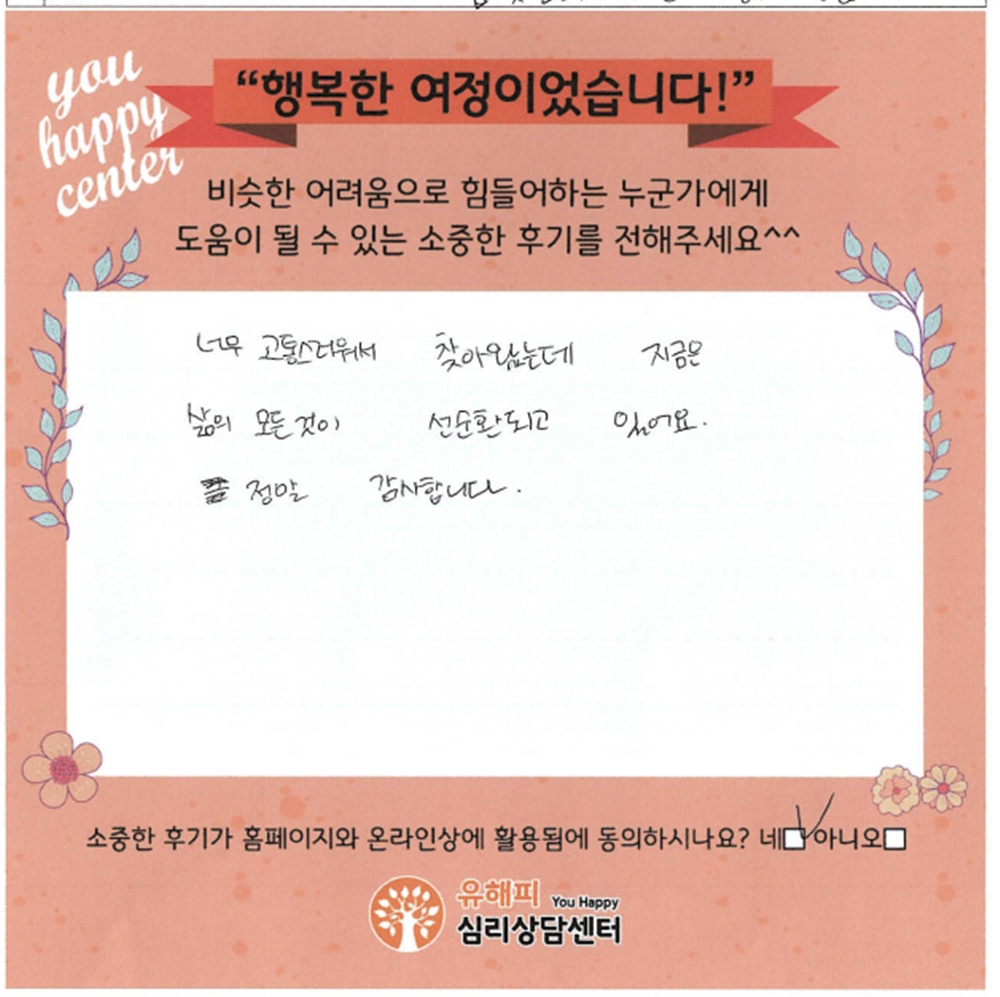 you
happy
center
“행복한 여정이었습니다!”
비슷한 어려움으로 힘들어하는 누군가에게
도움이 될 수 있는 소중한 후기를 전해주세요^^
너무 고통스러워서 찾아왔는데 지금은
삶의 모든것이 선순환되고 있어요.
정말 감사합니다.
소중한 후기가 홈페이지와 온라인상에 활용됨에 동의하시나요? 네 아니오
유해피 You Happy
심리상담센터